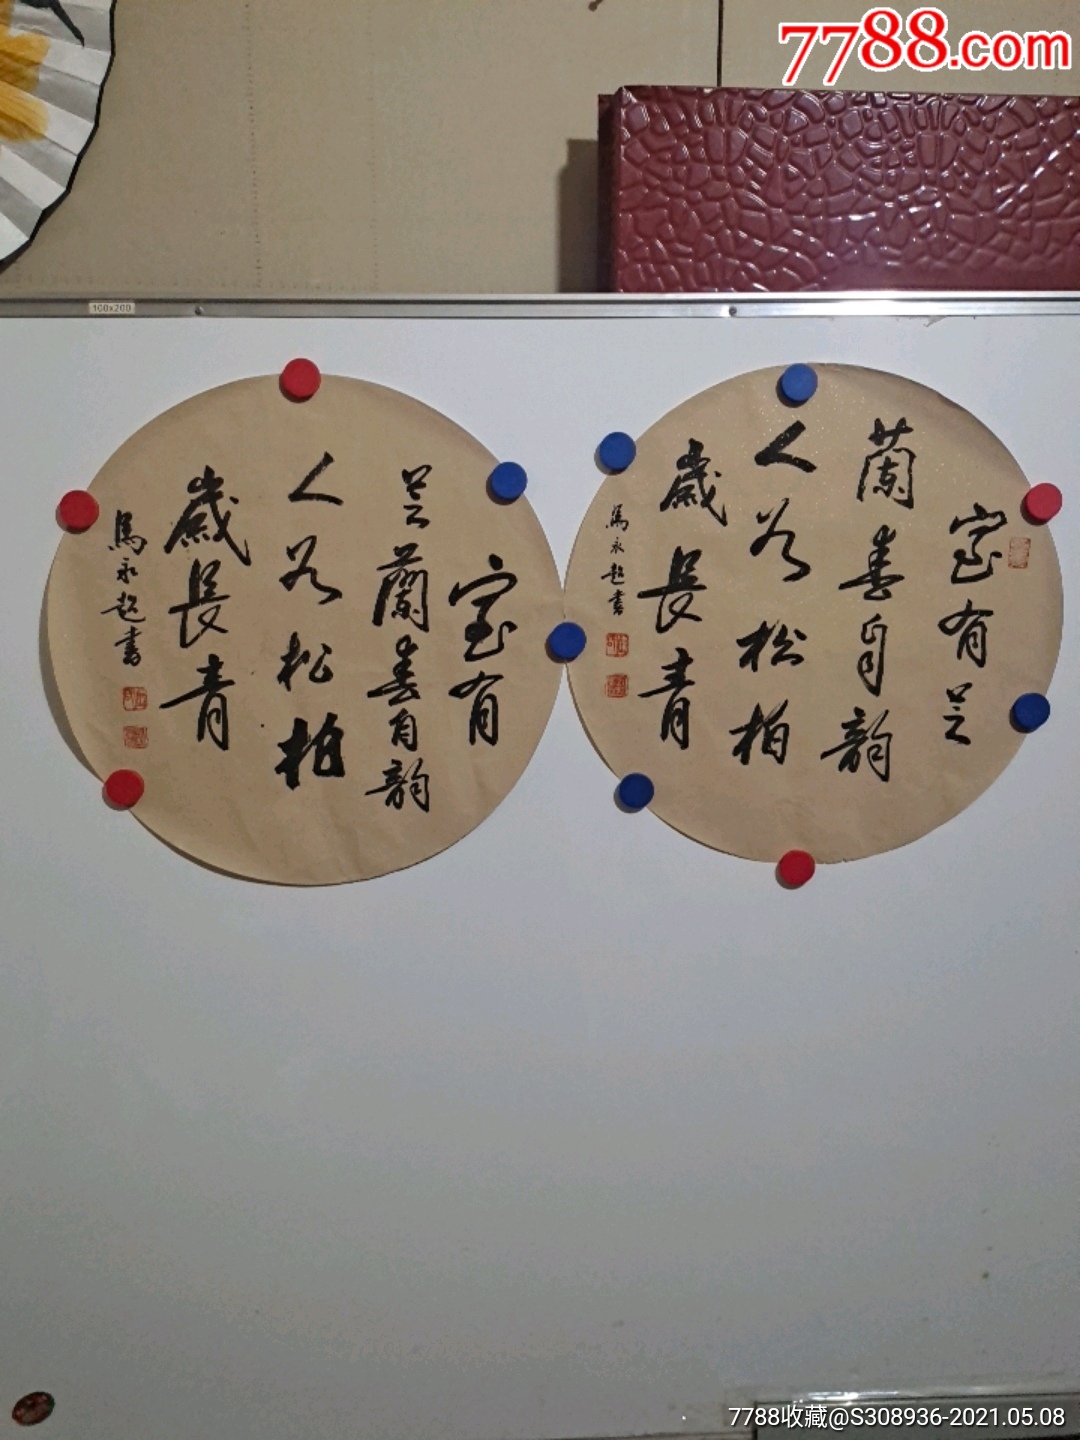 7788.com
100x200
室有
芝蘭春自韵
人如松柏
歲長青
馬永超書
室有芝
蘭春自韵
人如松柏
歲長青
馬永超書
7788收藏@S308936-2021.05.08